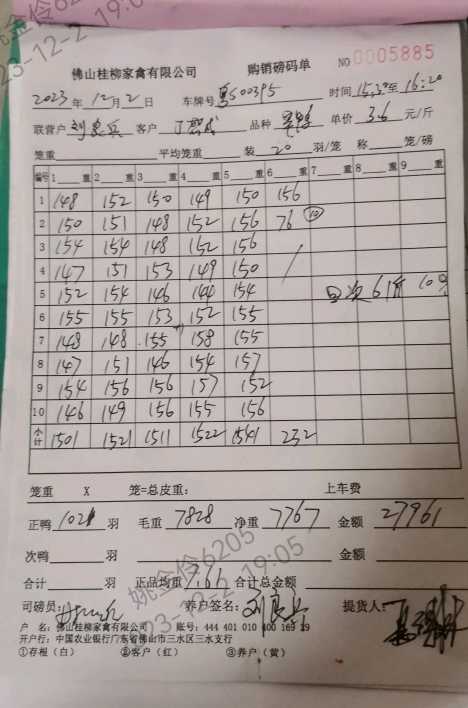 佛山桂柳家禽有限公司 购销磅码单 NO 0005885
2023年12月2日 车牌号 粤S00395 时间 15:30至16:20
联营户 刘良兵 客户 品种 单价 3.6 元/斤
笼重 平均笼重 装 20 羽/笼 称 笼/磅
编号 1 重 2 重 3 重 4 重 5 重 6 重 7 重 8 重 9 重
1 148 152 150 149 150 156
2 150 151 148 152 156 76 ⑩
3 154 154 148 152 156
4 147 151 153 149 150
5 152 154 146 144 154 回次61斤 10只
6 155 155 153 152 155
7 148 148 155 158 155
8 147 151 146 154 157
9 154 156 156 157 152
10 146 149 156 155 156
小计 1501 1521 1511 1522 1541 232
笼重 X 笼=总皮重: 上车费
正鸭 1021 羽 毛重 7828 净重 7767 金额 27961
次鸭 羽 金额
合计 羽 正品均重 7.66 合计总金额
司磅员: 养户签名: 刘良兵 提货人:
户 名: 佛山桂柳家禽有限公司 账号: 444 401 010 400 169 29
开户行: 中国农业银行广东省佛山市三水区三水支行
①存根(白) ②客户(红) ③养户(黄)
姚金伶6205
23-12-2 19:05